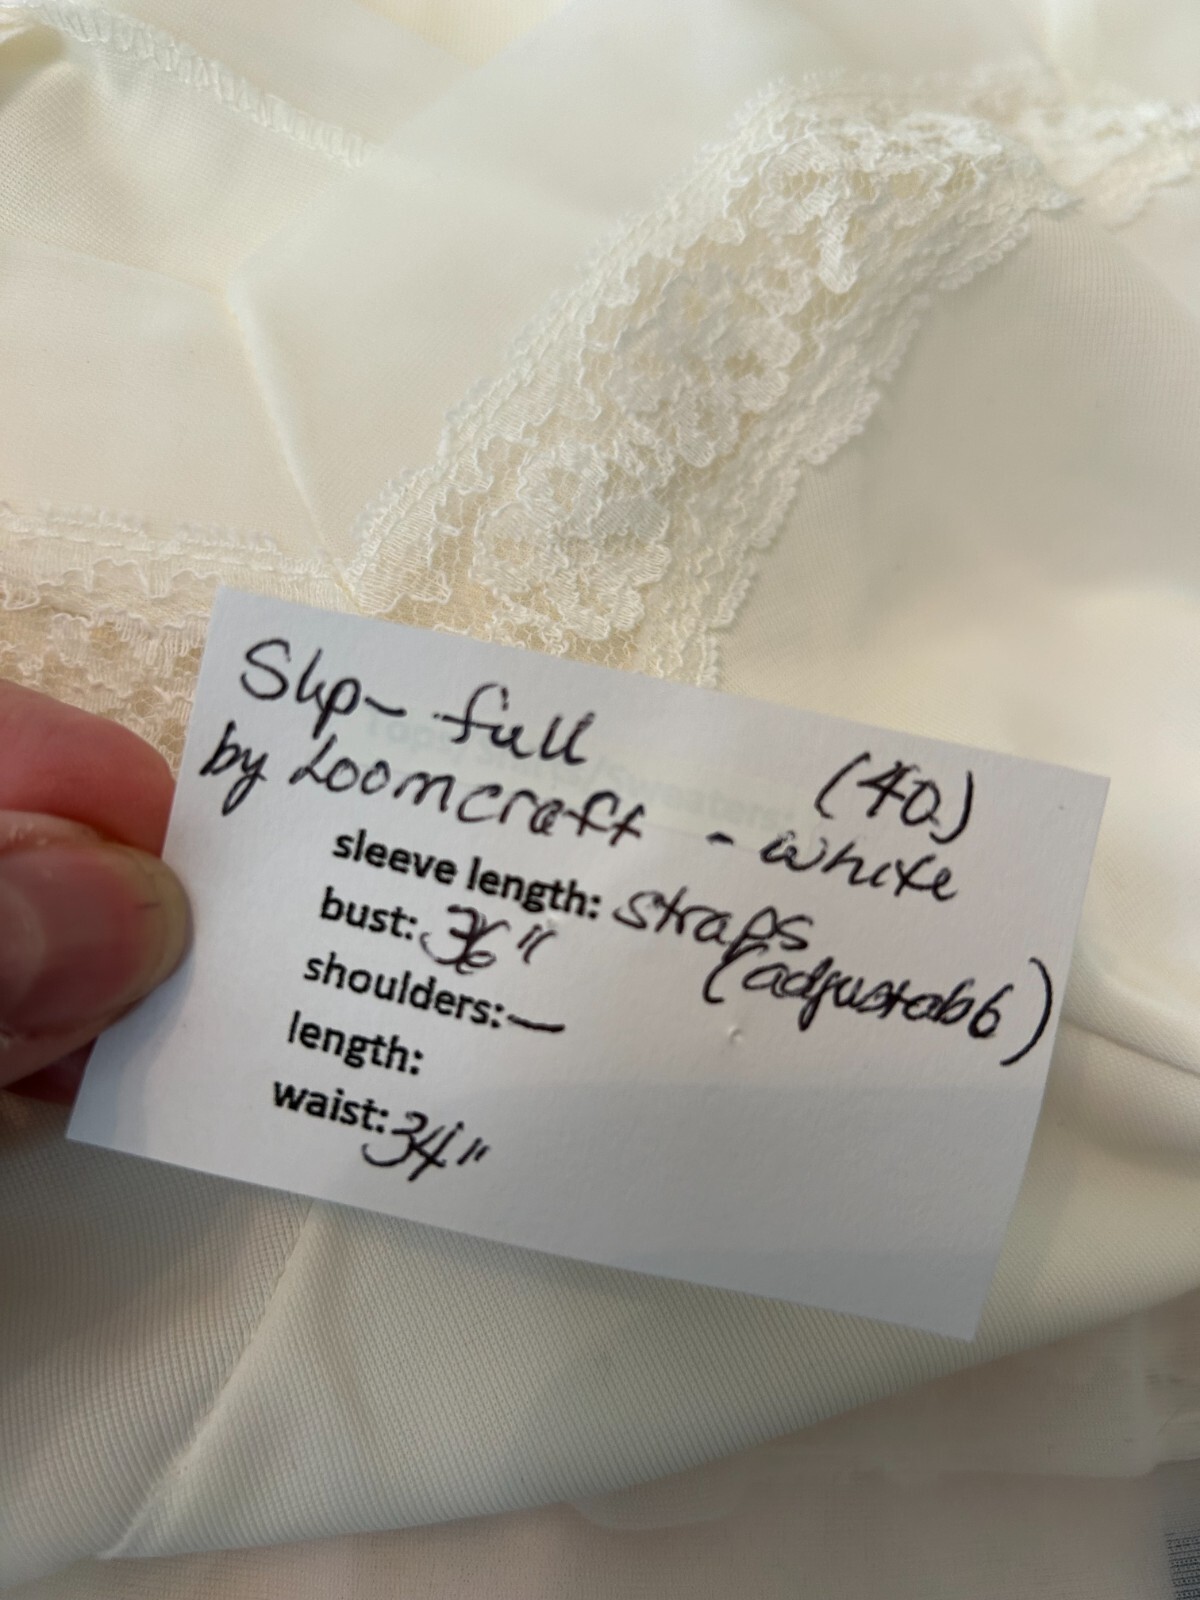 Slip- full
(40)
by Loomcraft - white
sleeve length: straps
(adjustable)
bust: 36"
shoulders: —
length:
waist: 34"